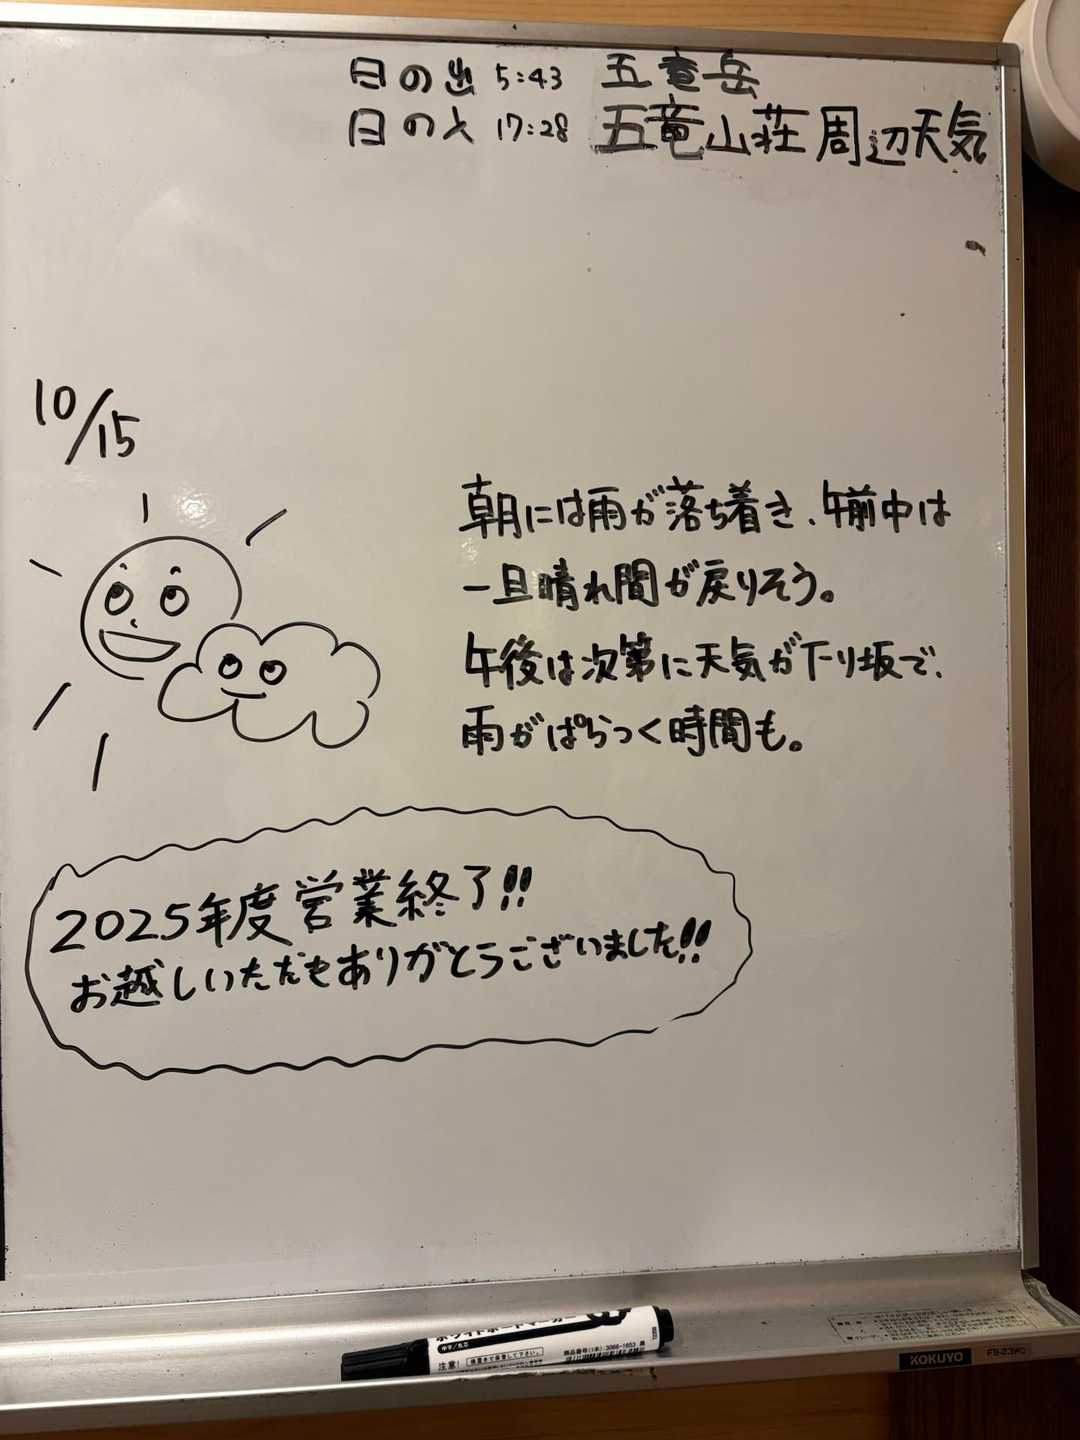 日の出 5:43 五竜岳
日の入 17:28 五竜山荘 周辺天気
10/15
朝には雨が落ち着き、午前中は
一旦晴れ間が戻りそう。
午後は次第に天気が下り坂で、
雨がぱらつく時間も。
2025年度営業終了!!
お越しいただきありがとうございました!!
ホワイトボードマーカー
中字/丸芯
注意!
KOKUYO
FB-23WC